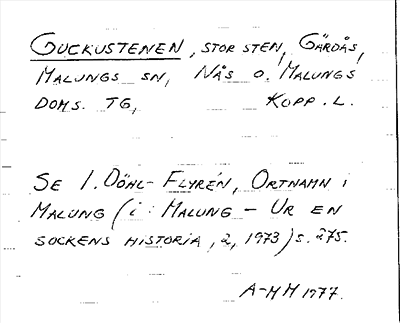 GUCKUSTENEN, STOR STEN, GÄRDÅS,
MALUNGS SN, NÅS O. MALUNGS
DOMS. TG, KOPP. L.
SE I. DÖHL-FLYRÉN, ORTNAMN I
MALUNG (i: MALUNG - UR EN
SOCKENS HISTORIA, 2, 1973) S. 275.
A-MM 1977.